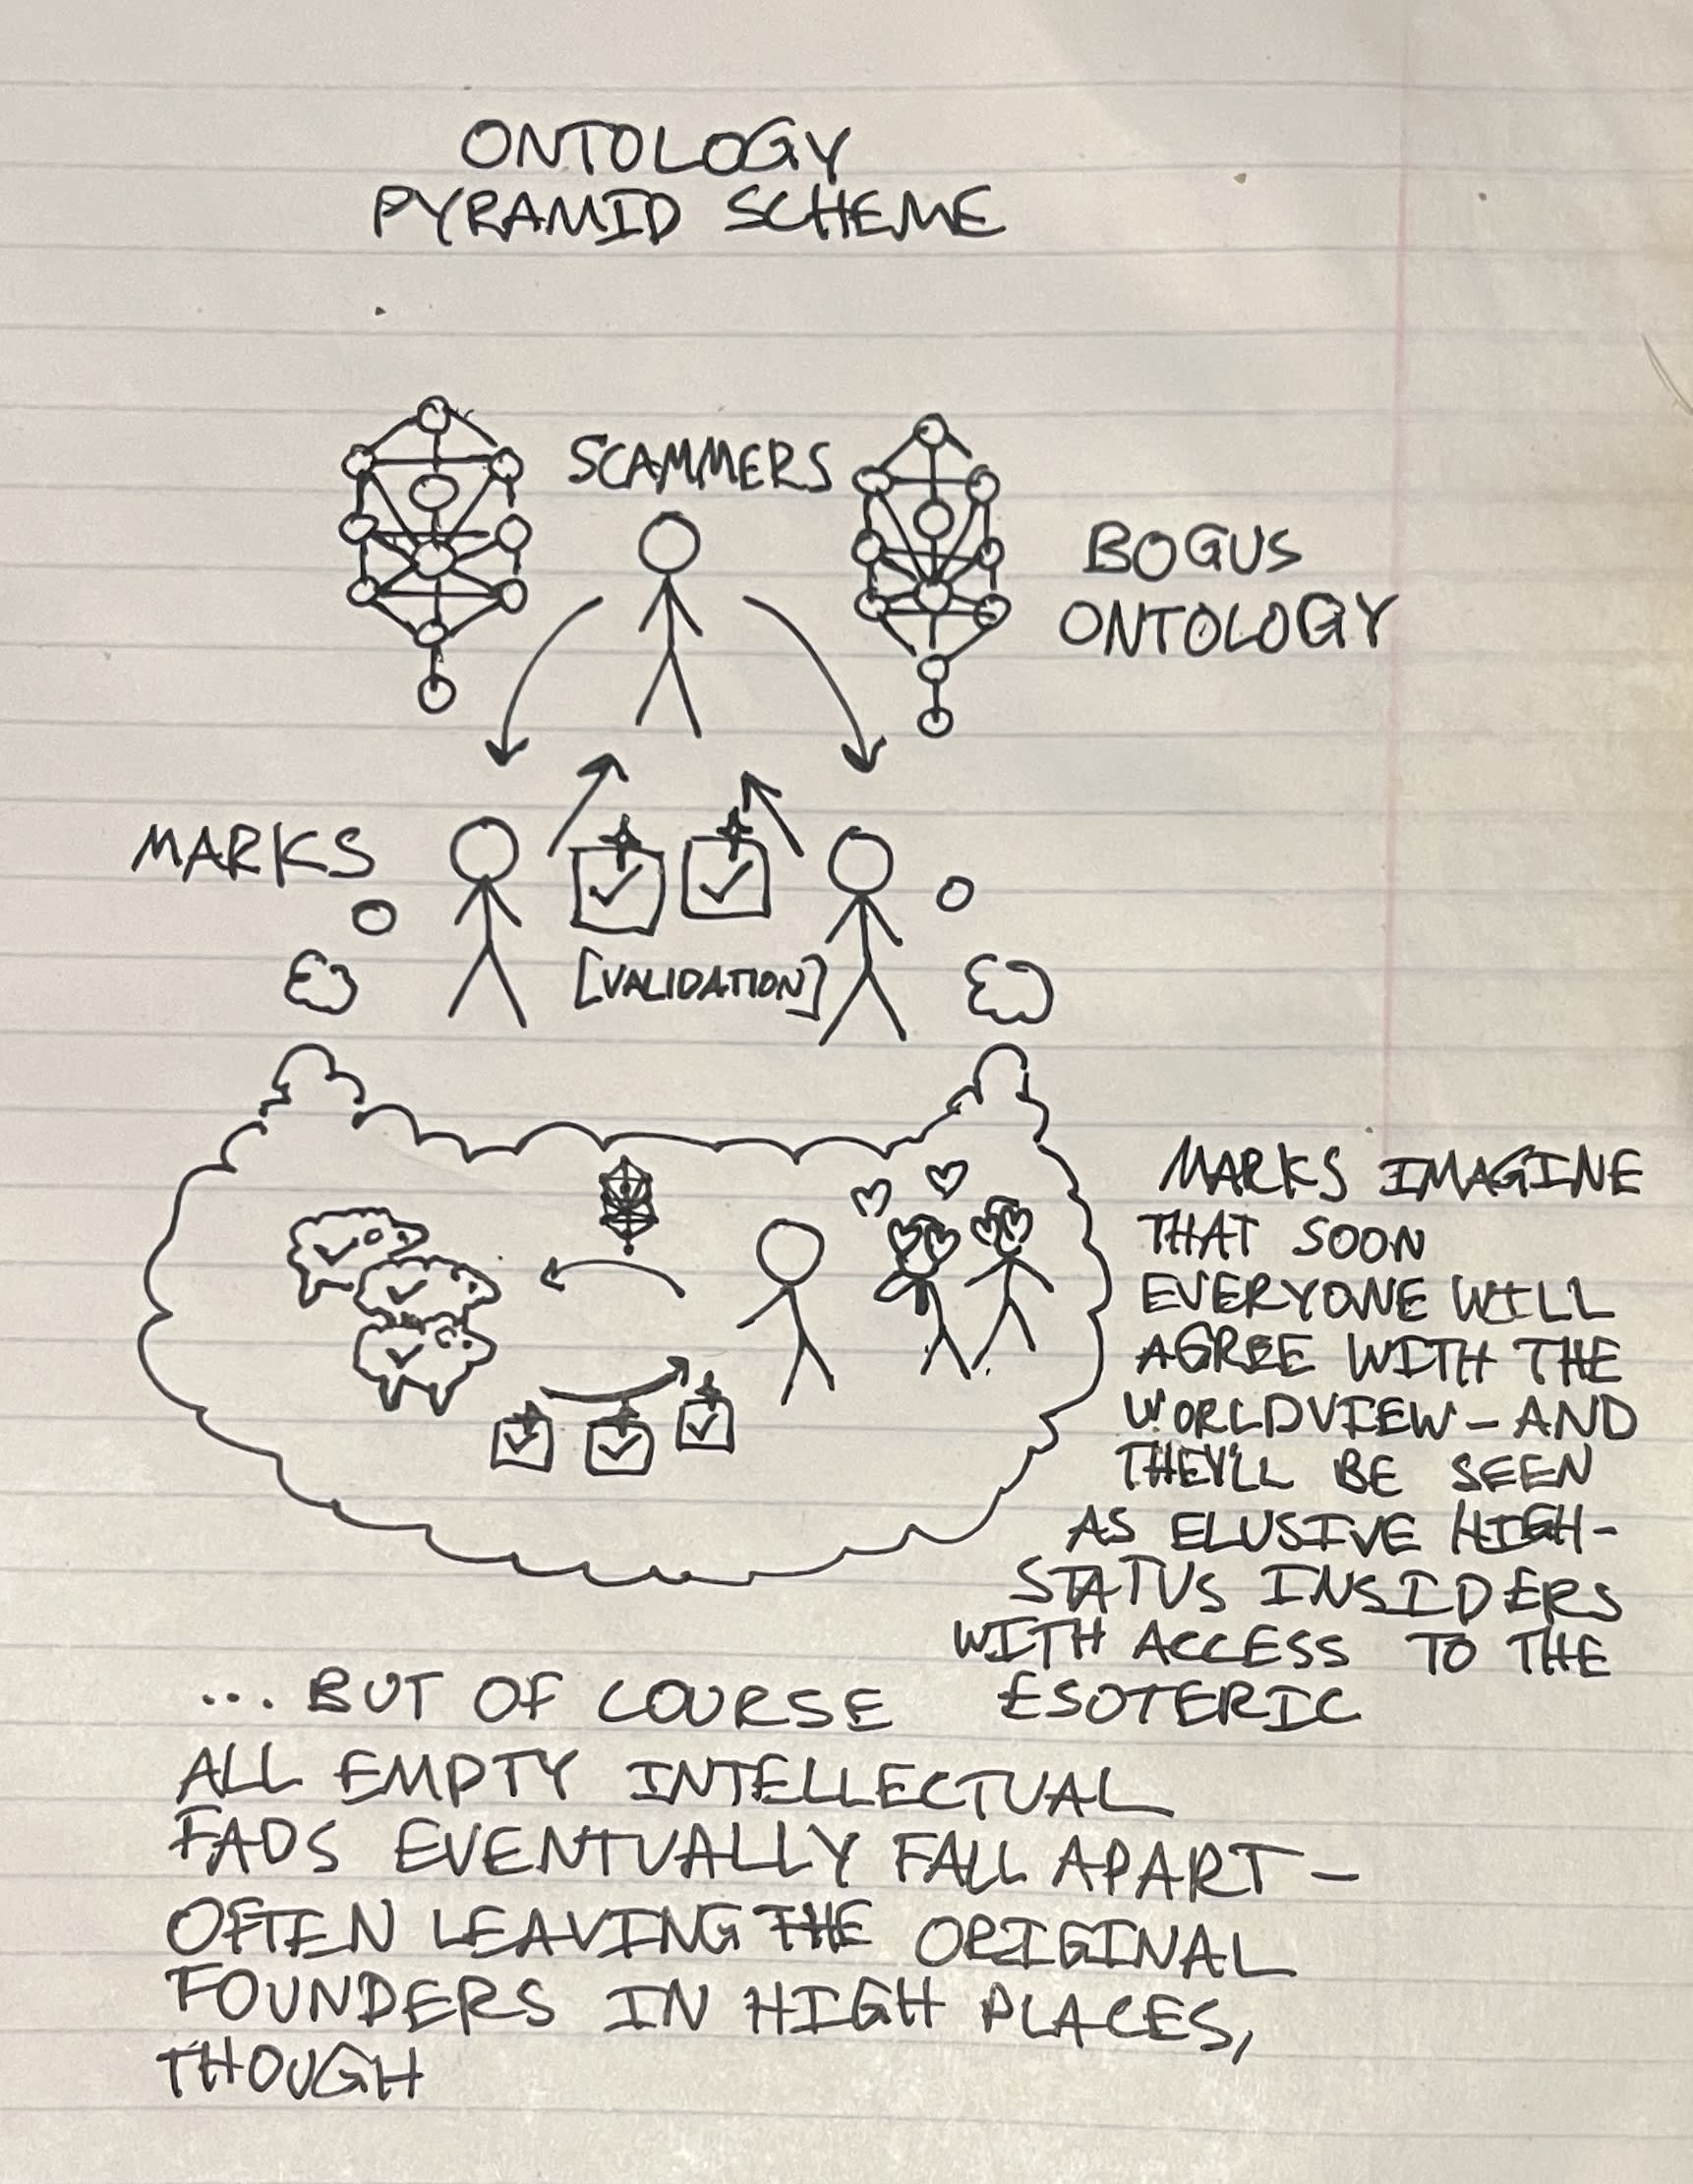 ONTOLOGY
PYRAMID SCHEME
SCAMMERS
BOGUS
ONTOLOGY
MARKS
[VALIDATION]
MARKS IMAGINE
THAT SOON
EVERYONE WILL
AGREE WITH THE
WORLDVIEW - AND
THEY'LL BE SEEN
AS ELUSIVE HIGH-
STATUS INSIDERS
WITH ACCESS TO THE
ESOTERIC
... BUT OF COURSE
ALL EMPTY INTELLECTUAL
FADS EVENTUALLY FALL APART -
OFTEN LEAVING THE ORIGINAL
FOUNDERS IN HIGH PLACES,
THOUGH